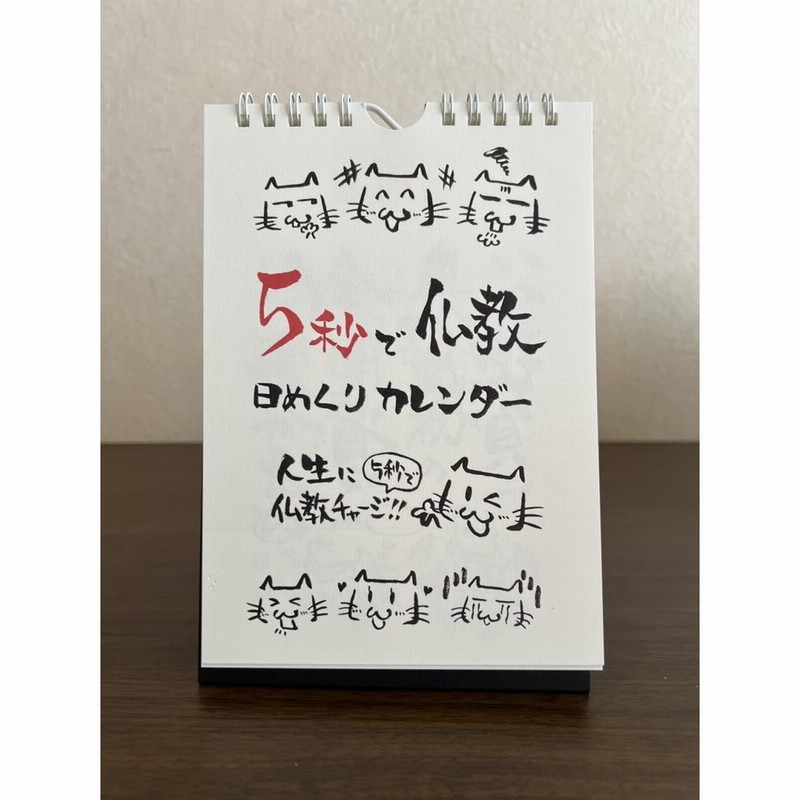 5秒で仏教
日めくりカレンダー
人生に
5秒で
仏教チャージ!!